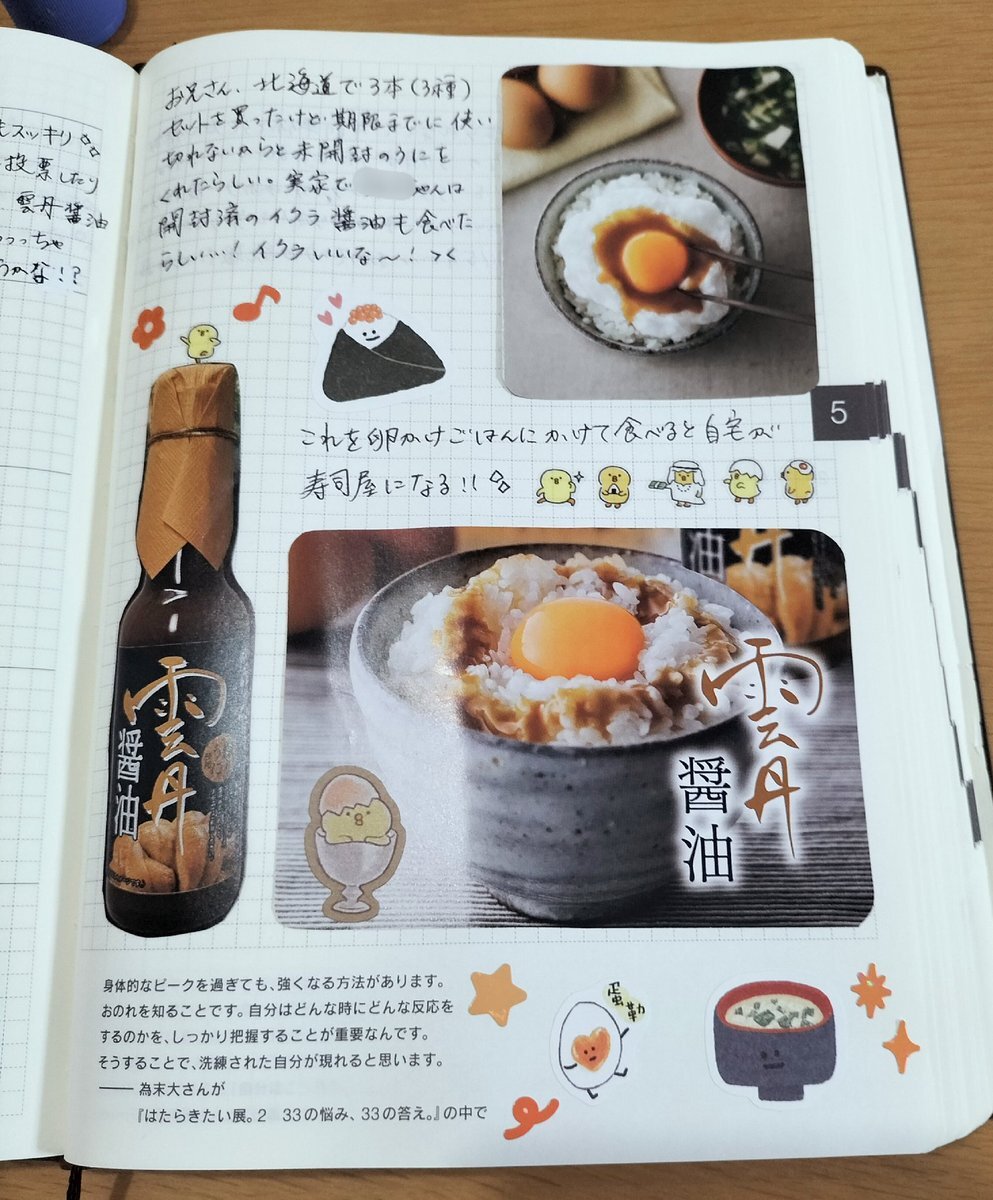 もスッキリ
投票したり
雲丹醤油
っっっちゃ
うかな!?
お兄さん、北海道で3本(3種)
セットを買ったけど期限までに使い
切れないからと未開封のうにを
くれたらしい。実家で ちゃんは
開封済のイクラ醤油も食べた
らしい…!イクラいいな〜!><
これを卵かけごはんにかけて食べると自宅が
寿司屋になる!!
5
雲丹
醤油
雲丹
醤油
油
丹
蛋勒
身体的なピークを過ぎても、強くなる方法があります。
おのれを知ることです。自分はどんな時にどんな反応を
するのかを、しっかり把握することが重要なんです。
そうすることで、洗練された自分が現れると思います。
—— 為末大さんが
『はたらきたい展。2 33の悩み、33の答え。』の中で